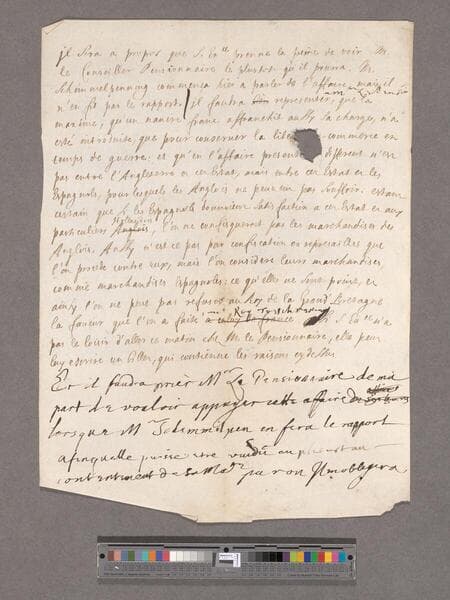 il sera a propos que S. Ex.ce prenne la peine de voir M.
le Conseiller Pensionnaire le plustost qu'il pourra. M.
Schimmelpenning commença hier a parler de l'affaire, mais il
n'en fit pas le rapport. il faudra luy representer, que la
maxime, qu'un navire franc affranchit aussy sa charge, n'a
esté introduite, que pour conserver la liberté commerce en
temps de guerre: et qu'en l'affaire presente different n'est
pas entre l'Angleterre et cet Estat, mais entre cet Estat et les
Espagnols, pour lesquels les Anglois ne peuvent pas souffrir. estant
certain que si les Espagnols donnoient satisfaction a cet Estat et aux
particuliers Anglois, l'on ne confisqueroit pas les marchandises des
Anglois. Aussy n'est ce pas par confiscation et represailles que
l'on procede contre eux, mais l'on considere leurs marchandises
comme marchandises Espagnoles: ce qu'elles ne sont point, et
ainsy l'on ne peut pas refuser au Roy de la Grand Bretagne
la faveur que l'on a faite a celuy de france. Si S. Ex.ce n'a
pas le loisir d'aller ce matin chez M. le Pensionnaire, elle peut
luy escrire un billet, qui contienne les raisons cy dessus.
Et il faudra prier M.r Le Pensionaire de ma
part de vouloir appuyer cette affaire
lorsque M.r Schimmelpen en fera le rapport
afin quelle puisse etre vuidée au plustost au
contentement de sa Ma.té